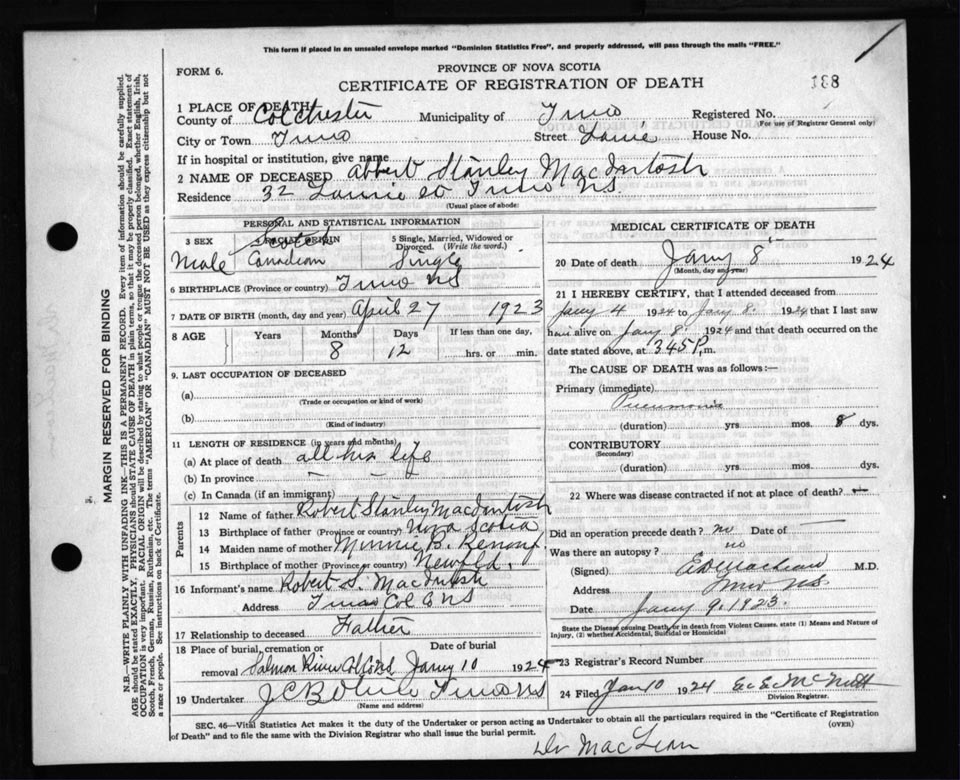 This form if placed in an unsealed envelope marked "Dominion Statistics Free", and properly addressed, will pass through the mails "FREE."
FORM 6.
PROVINCE OF NOVA SCOTIA
CERTIFICATE OF REGISTRATION OF DEATH
188
1 PLACE OF DEATH
County of Colchester Municipality of Truro Registered No.
(For use of Registrar General only)
City or Town Truro Street Laurie House No.
If in hospital or institution, give name
2 NAME OF DECEASED Albert Stanley MacIntosh
Residence 32 Laurie St Truro N.S.
(Usual place of abode)
PERSONAL AND STATISTICAL INFORMATION
3 SEX Male
4 RACIAL ORIGIN Scotch Canadian
5 Single, Married, Widowed or Divorced. (Write the word.) Single
6 BIRTHPLACE (Province or country) Truro NS
7 DATE OF BIRTH (month, day and year) April 27 1923
8 AGE Years Months Days If less than one day,
8 12 hrs. or min.
9. LAST OCCUPATION OF DECEASED
(a)
(Trade or occupation or kind of work)
(b)
(Kind of industry)
11 LENGTH OF RESIDENCE (in years and months)
(a) At place of death all his life
(b) In province
(c) In Canada (if an immigrant)
Parents
12 Name of father Robert Stanley MacIntosh
13 Birthplace of father (Province or country) Nova Scotia
14 Maiden name of mother Minnie B. Renouf
15 Birthplace of mother (Province or country) Newfld.
16 Informant's name Robert S. MacIntosh
Address Truro Col Co NS
17 Relationship to deceased Father
18 Place of burial, cremation or removal Date of burial
Salmon River Col Co NS Jany 10 1924
19 Undertaker Truro NS
(Name and address)
MEDICAL CERTIFICATE OF DEATH
20 Date of death Jany 8 1924
(Month, day and year)
21 I HEREBY CERTIFY, that I attended deceased from
Jany 4 1924 to Jany 8 1924 that I last saw
him alive on Jany 8 1924 and that death occurred on
date stated above, at 3.45 P. m.
The CAUSE OF DEATH was as follows:—
Primary (immediate)
Pneumonia
(duration) yrs mos. 8 dys.
CONTRIBUTORY
(Secondary)
(duration) yrs. mos. dys.
22 Where was disease contracted if not at place of death? —
Did an operation precede death? no Date of —
Was there an autopsy? no
(Signed) M.D.
Address Truro NS.
Date Jany 9. 1923.
State the Disease causing Death, or in death from Violent Causes. state (1) Means and Nature of Injury, (2) whether Accidental, Suicidal or Homicidal
23 Registrar's Record Number
24 Filed Jan 10 1924
Division Registrar.
SEC. 46—Vital Statistics Act makes it the duty of the Undertaker or person acting as Undertaker to obtain all the particulars required in the "Certificate of Registration of Death" and to file the same with the Division Registrar who shall issue the burial permit.
(OVER)
Dr MacLean
MARGIN RESERVED FOR BINDING
N.B.—WRITE PLAINLY WITH UNFADING INK—THIS IS A PERMANENT RECORD. Every item of information should be carefully supplied.
AGE should be stated EXACTLY. PHYSICIANS should STATE CAUSE OF DEATH in plain terms, so that it may be properly classified. Exact statement of
OCCUPATION is very important. RACIAL ORIGIN will be described by stating to what people or tongue the deceased person belonged, whether English, Irish,
Scotch, French, German, Russian, Ruthenian, etc. The terms "AMERICAN" OR "CANADIAN" MUST NOT BE USED as they express citizenship but not
a race or people. See instructions on back of Certificate.